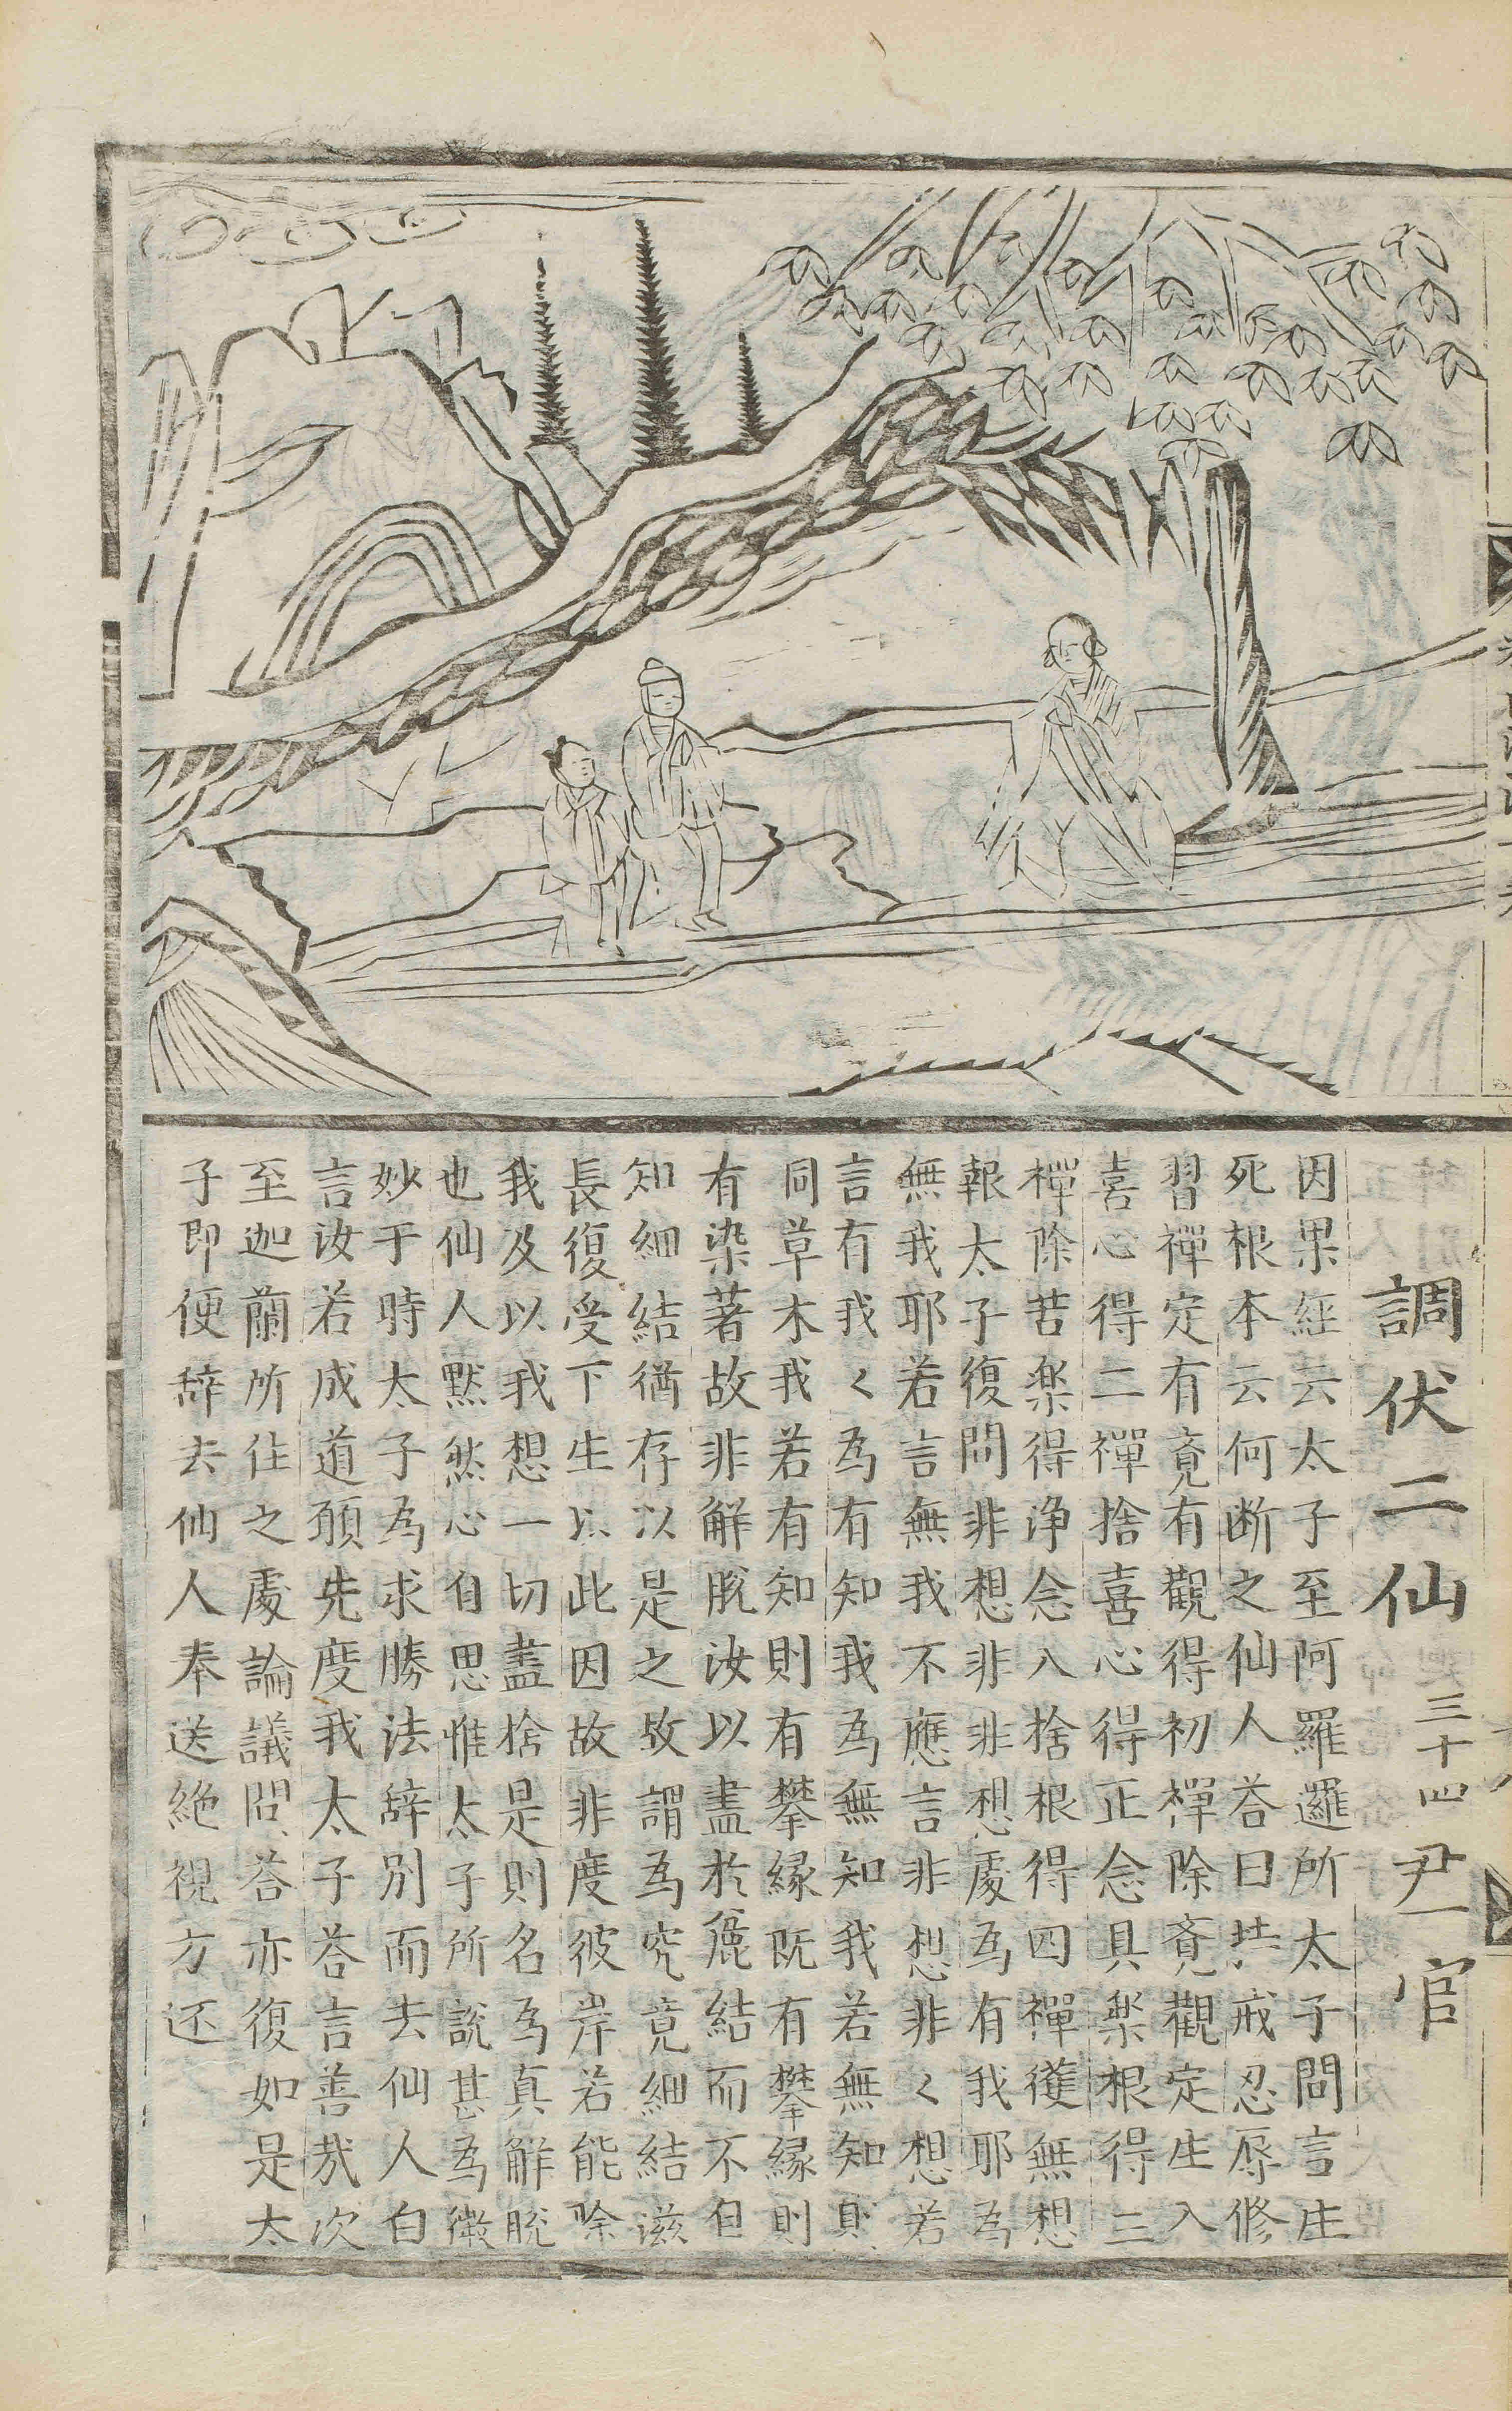 調伏二仙 三十四 尹官
因果經云太子至阿羅邏所太子問言生
死根本云何断之仙人荅曰持戒忍辱修
習禪定有覔有觀得初禪除覔觀定生入
喜心得二禪捨喜心得正念具樂根得三
禪除苦楽得浄念入捨根得四禪獲無想
報太子復問非想非非想處為有我耶為
無我耶若言無我不應言非想非〻想若
言有我〻為有知我為無知我若無知則
同草木我若有知則有攀縁既有攀縁則
有染著故非解脫汝以盡於麁結而不自
知細結猶存以是之故謂為究竟細結滋
長復受下生以此因故非度彼岸若能除
我及以我想一切盡捨是則名為真解脫
也仙人黙然心自思惟太子所說甚為微
妙于時太子為求勝法辞別而去仙人白
言汝若成道願先度我太子荅言善哉次
至迦蘭所住之處論議問荅亦復如是太
子即便辞去仙人奉送絶視方还